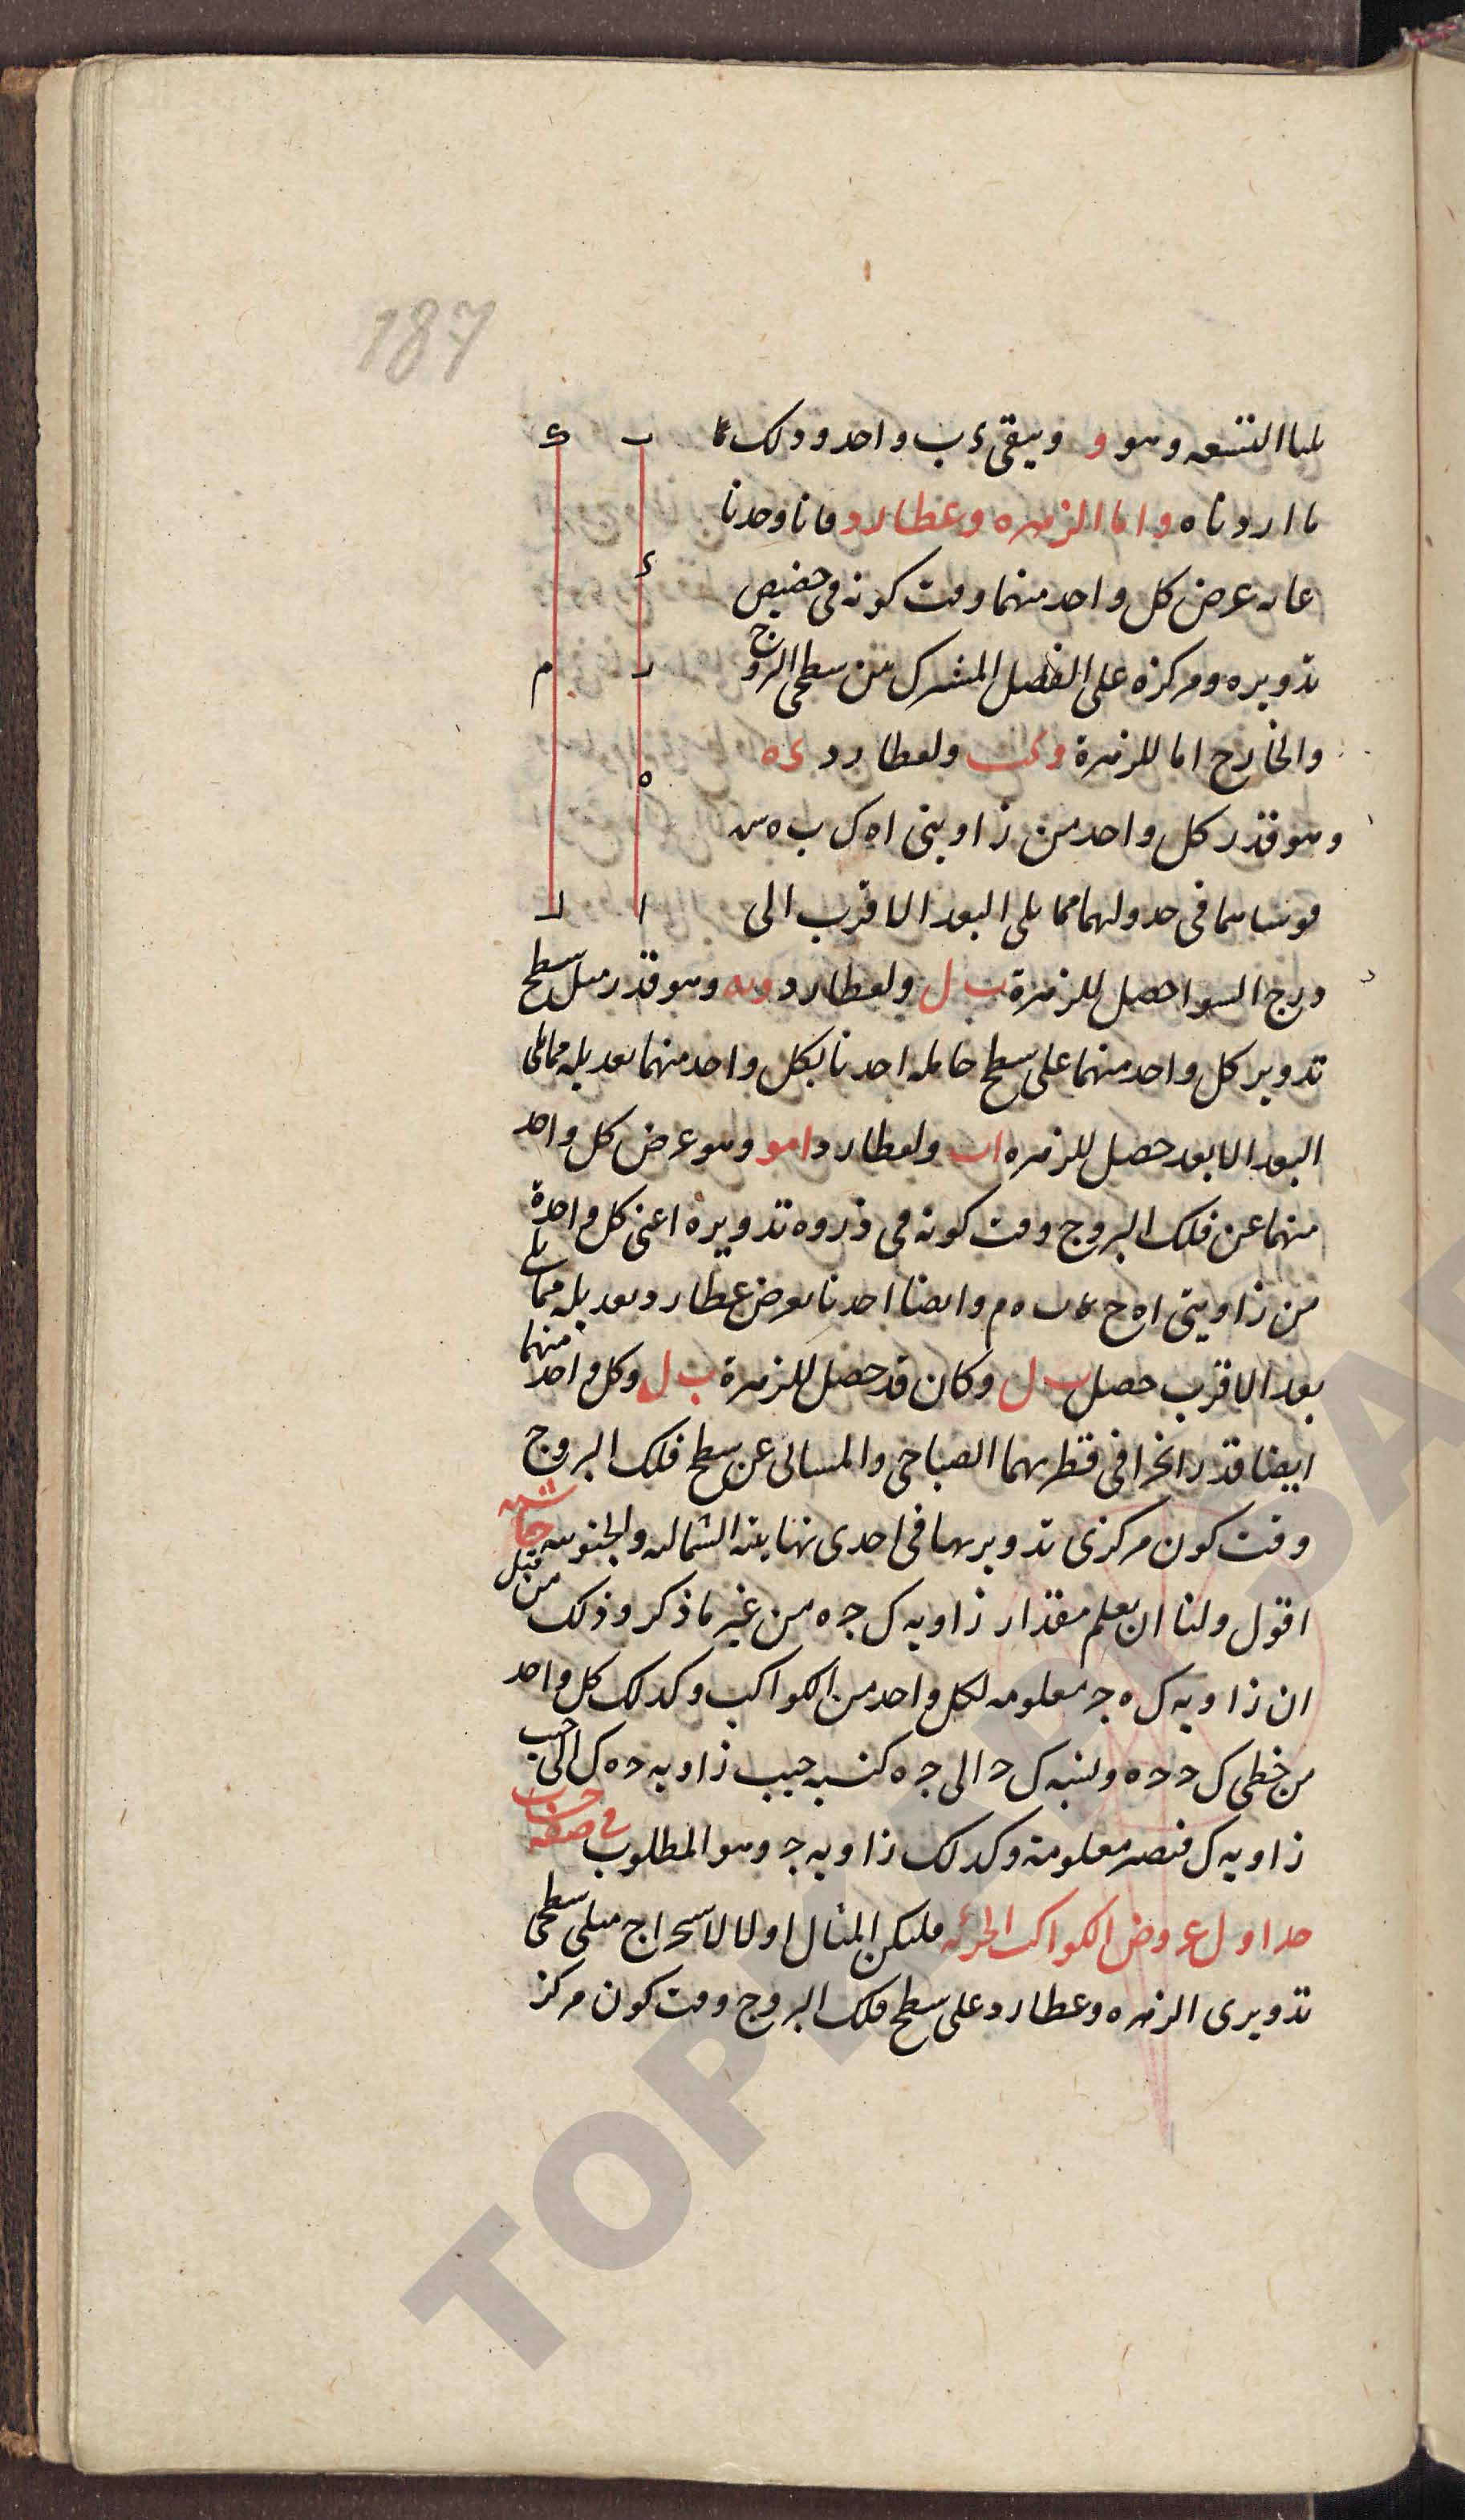 187
ثلثا التسعه وهو و ويبقى ء ب واحد وذلك
ما اردناه واما الزهره وعطارد فانا وجدنا
غايه عرض كل واحد منهما وقت كونه فى حضيض
تدويره ومركزه على الفصل المشترك بين سطحى البروج
والخارج اما للزهرة و ولعطارد ء ه
وهو قدر كل واحد من زاويتى ا ه ك ب ه س
قوسناهما فى جدولهما مما يلى البعد الاقرب الى
درج السوا حصل للزهرة ب ل ولعطارد وهو قدر ميل سطح
تدوير كل واحد منهما على سطح حامله اخذنا لكل واحد منهما تعديله مما يلى
البعد الابعد حصل للزهره ا ب ولعطارد ا مو وهو عرض كل واحد
منهما عن فلك البروج وقت كونه فى ذروه تدويره اعنى كل واحدة
من زاويتى ا ه ح ب ه م وايضا اخذنا لعرض عطارد تعديله مما يلى
بعد الاقرب حصل ب ل وكان قد حصل للزهرة ب ل وكل واحد منهما
ايضا قدر انحرافى قطريهما الصباحى والمسائى عن سطح فلك البروج
وقت كون مركزى تدويرهما فى احدى نهايتى الشماليه والجنوبيه حاشيه
اقول ولنا ان نعلم مقدار زاويه ك ج ه من غير ما ذكر وذلك من قبل
ان زاويه ك ه ج معلومه لكل واحد من الكواكب وكذلك كل واحد
من خطى ك ج ج ه ونسبه ك ج الى ج ه كنسبه جيب زاويه ج ه ك الى جيب
زاويه ك فتصير معلومة وكذلك زاويه ج وهو المطلوب فى صفه حساب
جداول عروض الكواكب الجزئيه فليكن المثال اولا لاستخراج ميلى سطحى
تدويرى الزهره وعطارد على سطح فلك البروج وقت كون مركز
ب
ء
ر
ه
ا
م